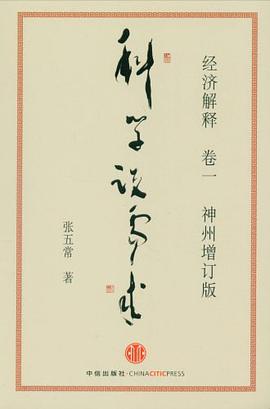 经济解释 卷一 神州增订版
科学说需求
张五常 著
中信出版社·CHINACITICPRESS